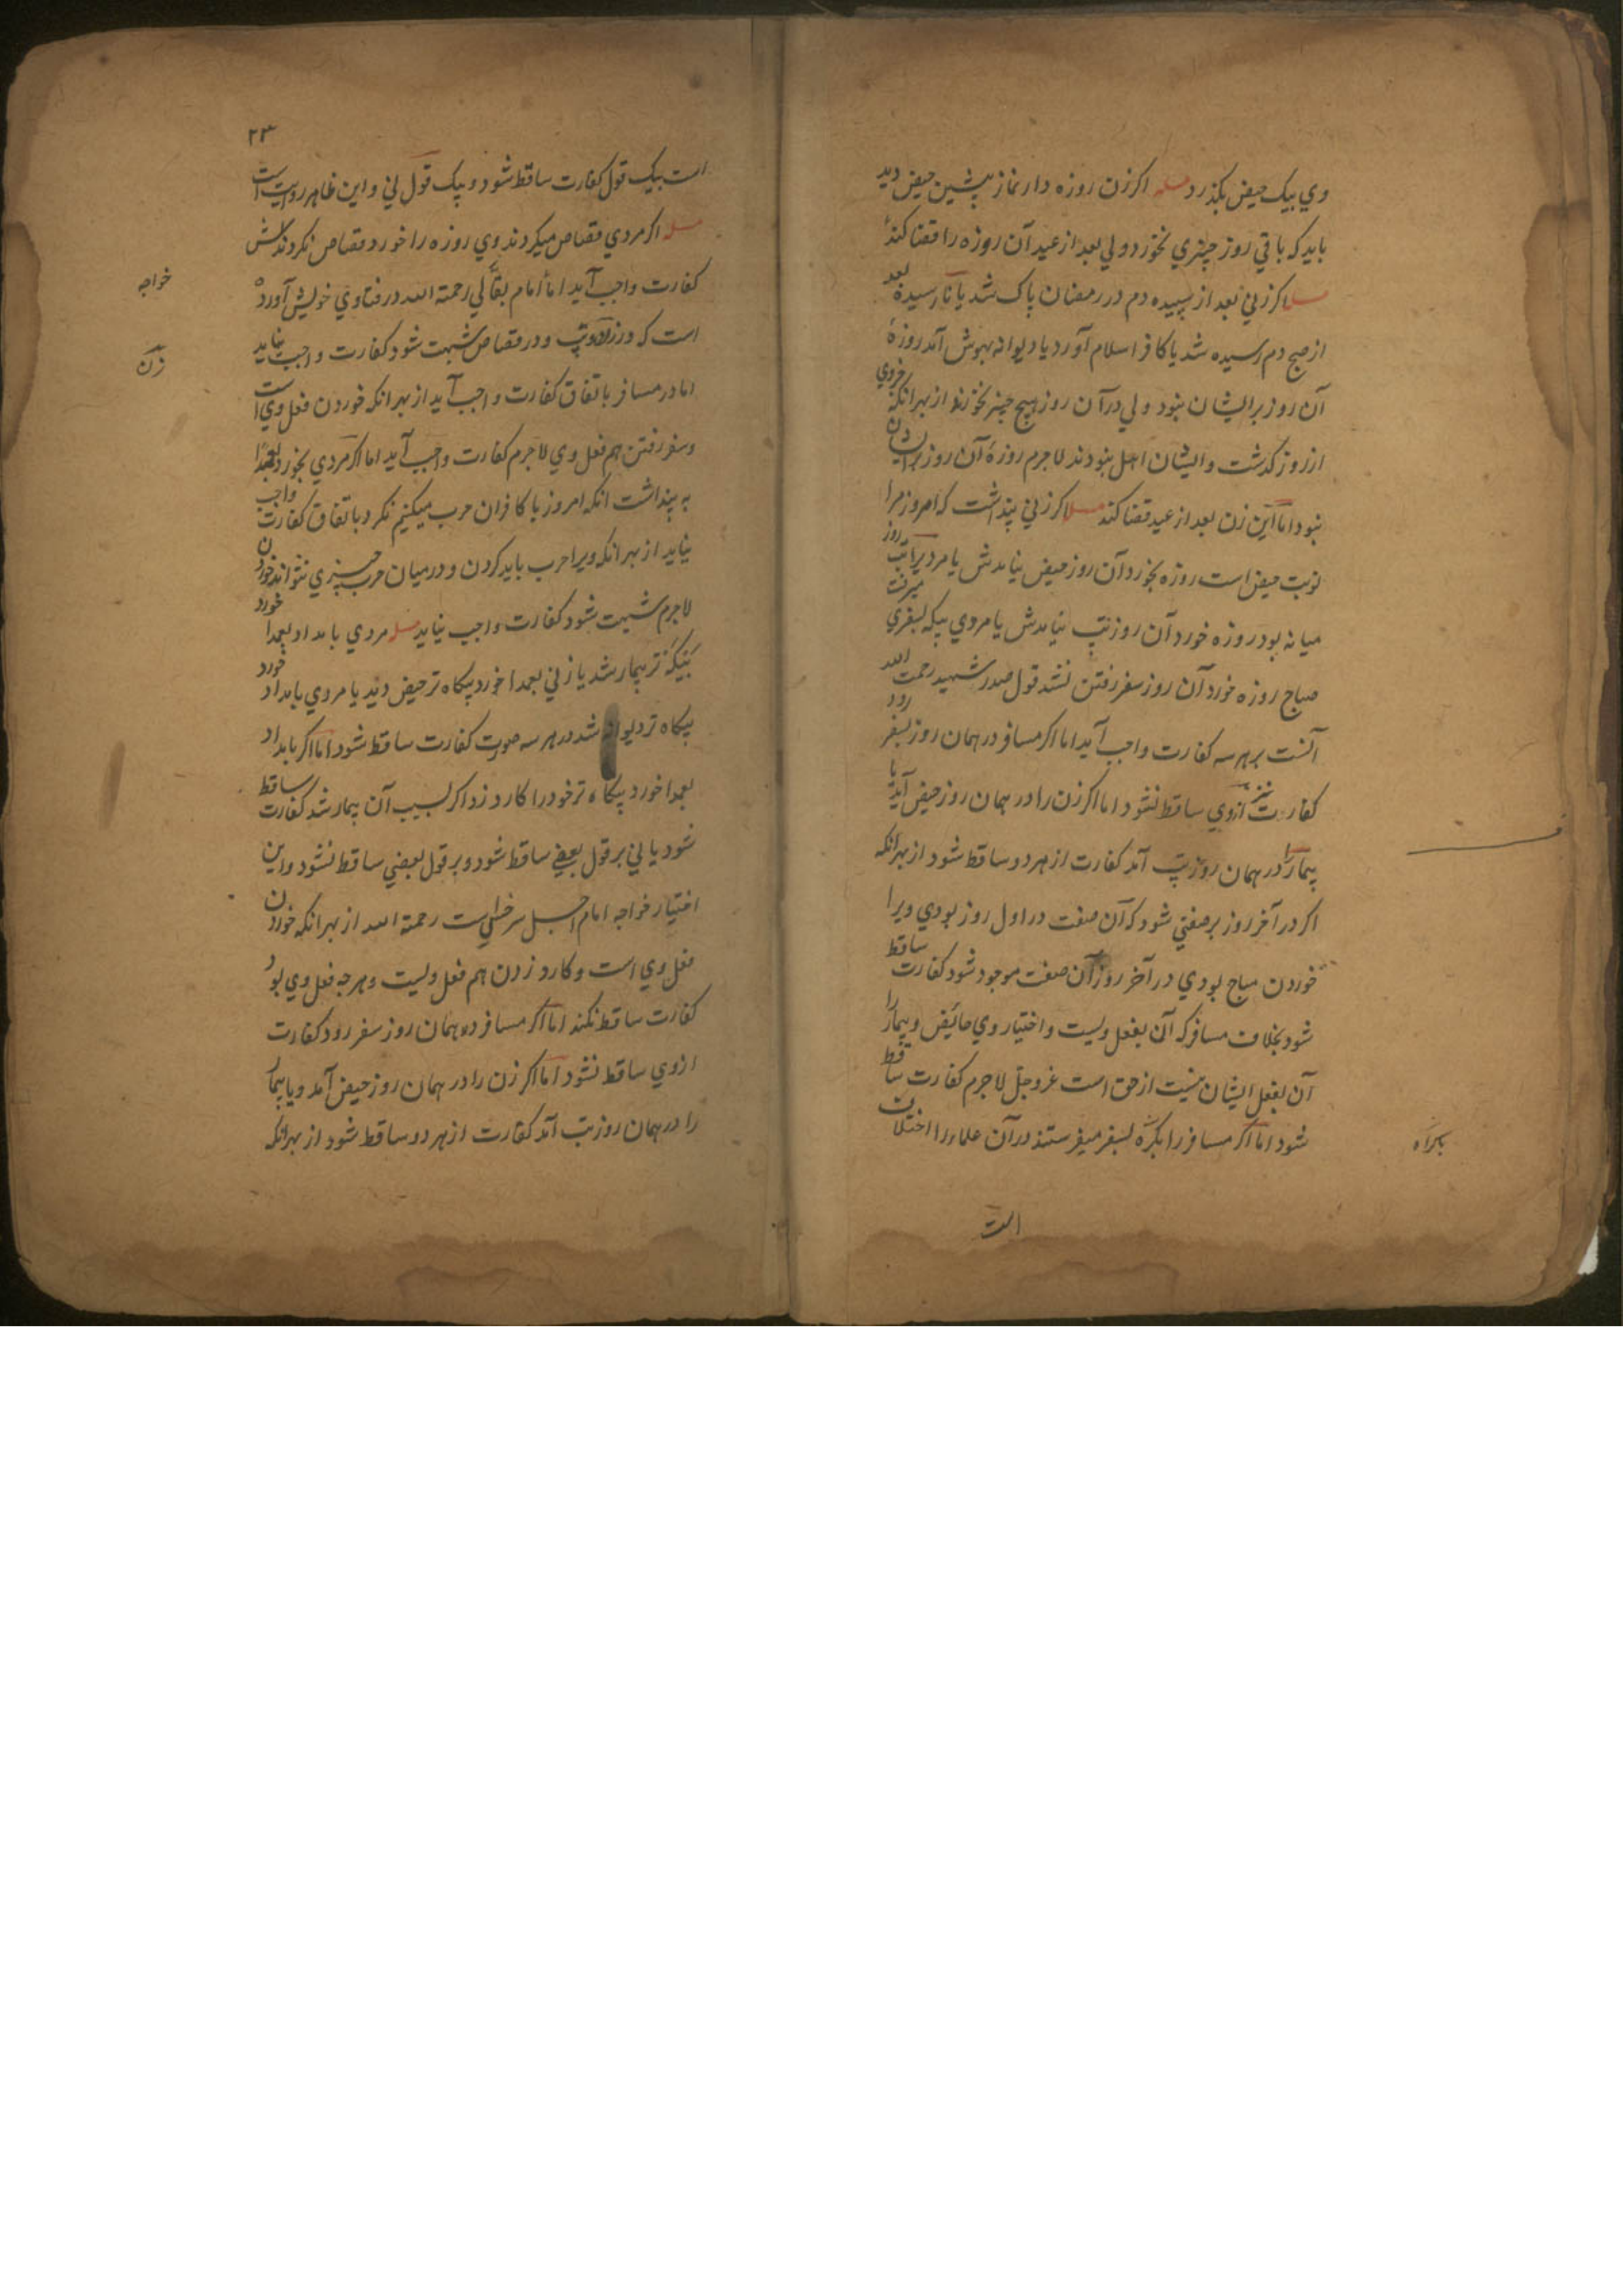 وي بيك حيض بكذرد مسله اكر زن روزه دار نماز پيشين حيض ديد
بايد كه باقي روز چيزي نخورد ولي بعد از عيد آن روزه را قضا كند
مسله اكر زني بعد از سپيده دم در رمضان پاك شد يا نارسيده بعد
از صبح دم رسيده شد يا كافر اسلام آورد يا ديوانه بهوش آمد روزهٔ
آن روز بر ايشان نبود ولي در آن روز هيچ چيز نخورند از بهر انكه
از روز كذشت و ايشان اهل نبودند لاجرم روزهٔ آن روز بر ايشان
نبود اما اين زن بعد از عيد قضا كند مسله اكر زني پنداشت كه امروز مرا
نوبت حيض است روزه بخورد آن روز حيض نيامدش يا مرديرا تب روز
ميانه بود روزه خورد آن روز تب نيامدش يا مردي بيكه بسفري ميرفت
صباح روزه خورد آن روز سفر رفتن نشد قول صدر شهيد رحمت الله
آنست بر هر سه كفارت واجب آيد اما اكر مسافر در همان روز بسفر رود
كفارت نيز ازوي ساقط نشود اما اكر زن را در همان روز حيض آيد يا
بيمار را در همان روز تب آمد كفارت از هر دو ساقط شود از بهر انكه
اكر در آخر روز بر صفتي شود كه آن صفت در اول روز بودي ويرا
خوردن مباح بودي در آخر روز آن صفت موجود شود كفارت ساقط
شود بخلاف مسافر كه آن بفعل ويست و اختيار وي حائض و بيمار را
آن بفعل ايشان نيست از حق است عزوجل لاجرم كفارت ساقط
شود اما اكر مسافر را بكره بسفر ميفرستند در آن علما را اختلاف
باكراه
است
۲۳
است بيك قول كفارت ساقط شود و بيك قول ني و اين ظاهر روايت است
مسله اكر مردي قصاص ميكردند وي روزه را خورد قصاص نكردندش
كفارت واجب آيد اما امام بقالي رحمة الله در فتاوي خويش آورده
خواجه
است كه در زن و تب و در قصاص شبهت شود كفارت واجب نيايد
زن
اما در مسافر باتفاق كفارت واجب آيد از بهر انكه خوردن فعل وي است
و سفر رفتن هم فعل وي لاجرم كفارت واجب آيد اما اكر مردي بخورد بعمدا
به پنداشت انكه امروز با كافران حرب ميكنيم نكرد باتفاق كفارت واجب
نيايد از بهر انكه ويرا حرب بايد كردن و در ميان حرب چيزي نتواند خوردن
لاجرم شبهت شود كفارت واجب نيايد مسله مردي بامداد بعمدا خورد
بيكه تر بيمار شد يا زني بعمدا خورد پكاه تر حيض ديد يا مردي بامداد خورد
پكاه تر ديوانه شد در هر سه صورت كفارت ساقط شود اما اكر بامداد
بعمدا خورد پكاه تر خود را كارد زد اكر بسبب آن بيمار شد كفارت ساقط
شود يا ني بر قول بعضي ساقط شود و بر قول بعضي ساقط نشود و اين
اختيار خواجه امام اجل سرخسي است رحمة الله از بهر انكه خوردن
فعل وي است و كارد زدن هم فعل ويست و هر چه فعل وي بود
كفارت ساقط نكند اما اكر مسافر در همان روز سفر رود كفارت
ازوي ساقط نشود اما اكر زن را در همان روز حيض آمد و يا بيمار
را در همان روز تب آمد كفارت از هر دو ساقط شود از بهر انكه